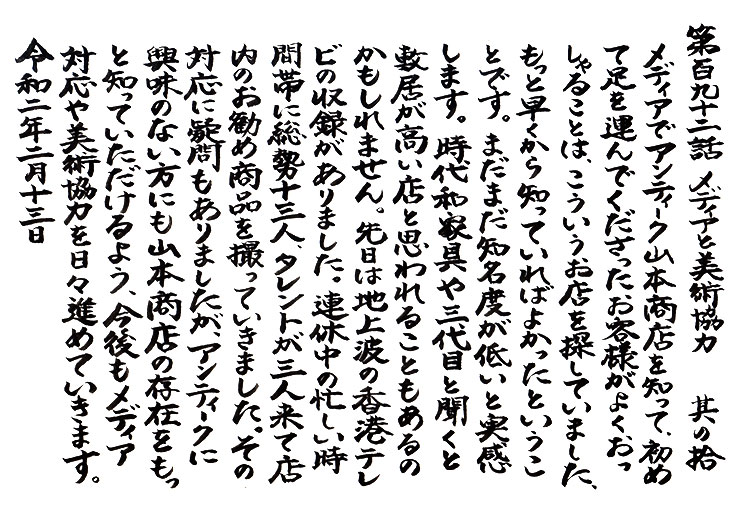 第百九十二話 メディアと美術協力 其の拾
メディアでアンティーク山本商店を知って、初め
て足を運んでくださったお客様がよく、おっ
しゃることは、こういうお店を探していました、
もっと早くから知っていればよかったというこ
とです。まだまだ知名度が低いと実感
します。時代和家具や三代目と聞くと
敷居が高い店と思われることもあるの
かもしれません。先日は地上波の香港テレ
ビの収録がありました。連休中の忙しい時
間帯に総勢十三人、タレントが三人来て店
内のお勧め商品を撮っていきました。その
対応に疑問もありましたが、アンティークに
興味のない方にも山本商店の存在をもっ
と知っていただけるよう、今後もメディア
対応や美術協力を日々進めていきます。
令和二年二月十三日